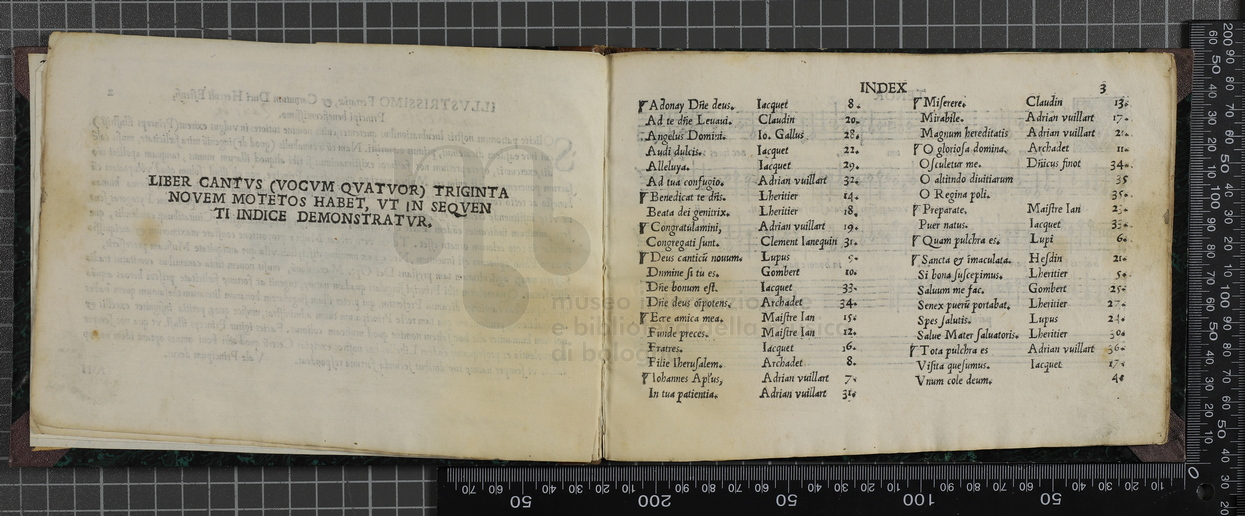 LIBER CANTVS (VOCVM QVATVOR) TRIGINTA
NOVEM MOTETOS HABET, VT IN SEQVEN
TI INDICE DEMONSTRATVR.
INDEX 3
Adonay Dñe deus. Iacquet 8.
Ad te dñe Leuaui. Claudin 20.
Angelus Domini. Io. Gallus 28.
Audi dulcis. Iacquet 22.
Alleluya. Iacquet 29.
Ad tua confugio. Adrian vuillart 32.
Benedicat te dñs. Lheritier 14.
Beata dei genitrix. Lheritier 18.
Congratulamini, Adrian vuillart 19.
Congregati sunt. Clement Ianequin 31.
Deus canticũ nouum. Lupus
Dnmine si tu es. Gombert 10.
Dñe bonum est. Iacquet 33.
Dñe deus oĩpotens. Archadet 34.
Ecce amica mea. Maistre Ian 15.
Funde preces. Maistre Ian 12.
Fratres. Iacquet 16.
Filie Iherusalem. Archadet 8.
Iohannes Apl'us, Adrian vuillart 7.
In tua patientia. Adrian vuillart 31.
Miserere. Claudin 13.
Mirabile. Adrian vuillart 17.
Magnum hereditatis Adrian vuillart
O gloriosa domina. Archadet 11.
Osculetur me. Dñicus finot 34.
O altitndo diuitiarum 35
O Regina poli. 35.
Preparate. Maistre Ian
Puer natus. Iacquet
Quam pulchra es. Lupi 6.
Sancta & imaculata. Hesdin 21.
Si bona suscepimus. Lheritier 5.
Saluum me fac. Gombert 25.
Senex puerũ portabat. Lheritier 27.
Spes salutis. Lupus
Salue Mater saluatoris. Lheritier 30.
Tota pulchra es Adrian vuillart 36.
Visita quesumus. Iacquet 17.
Vnum cole deum. 4.